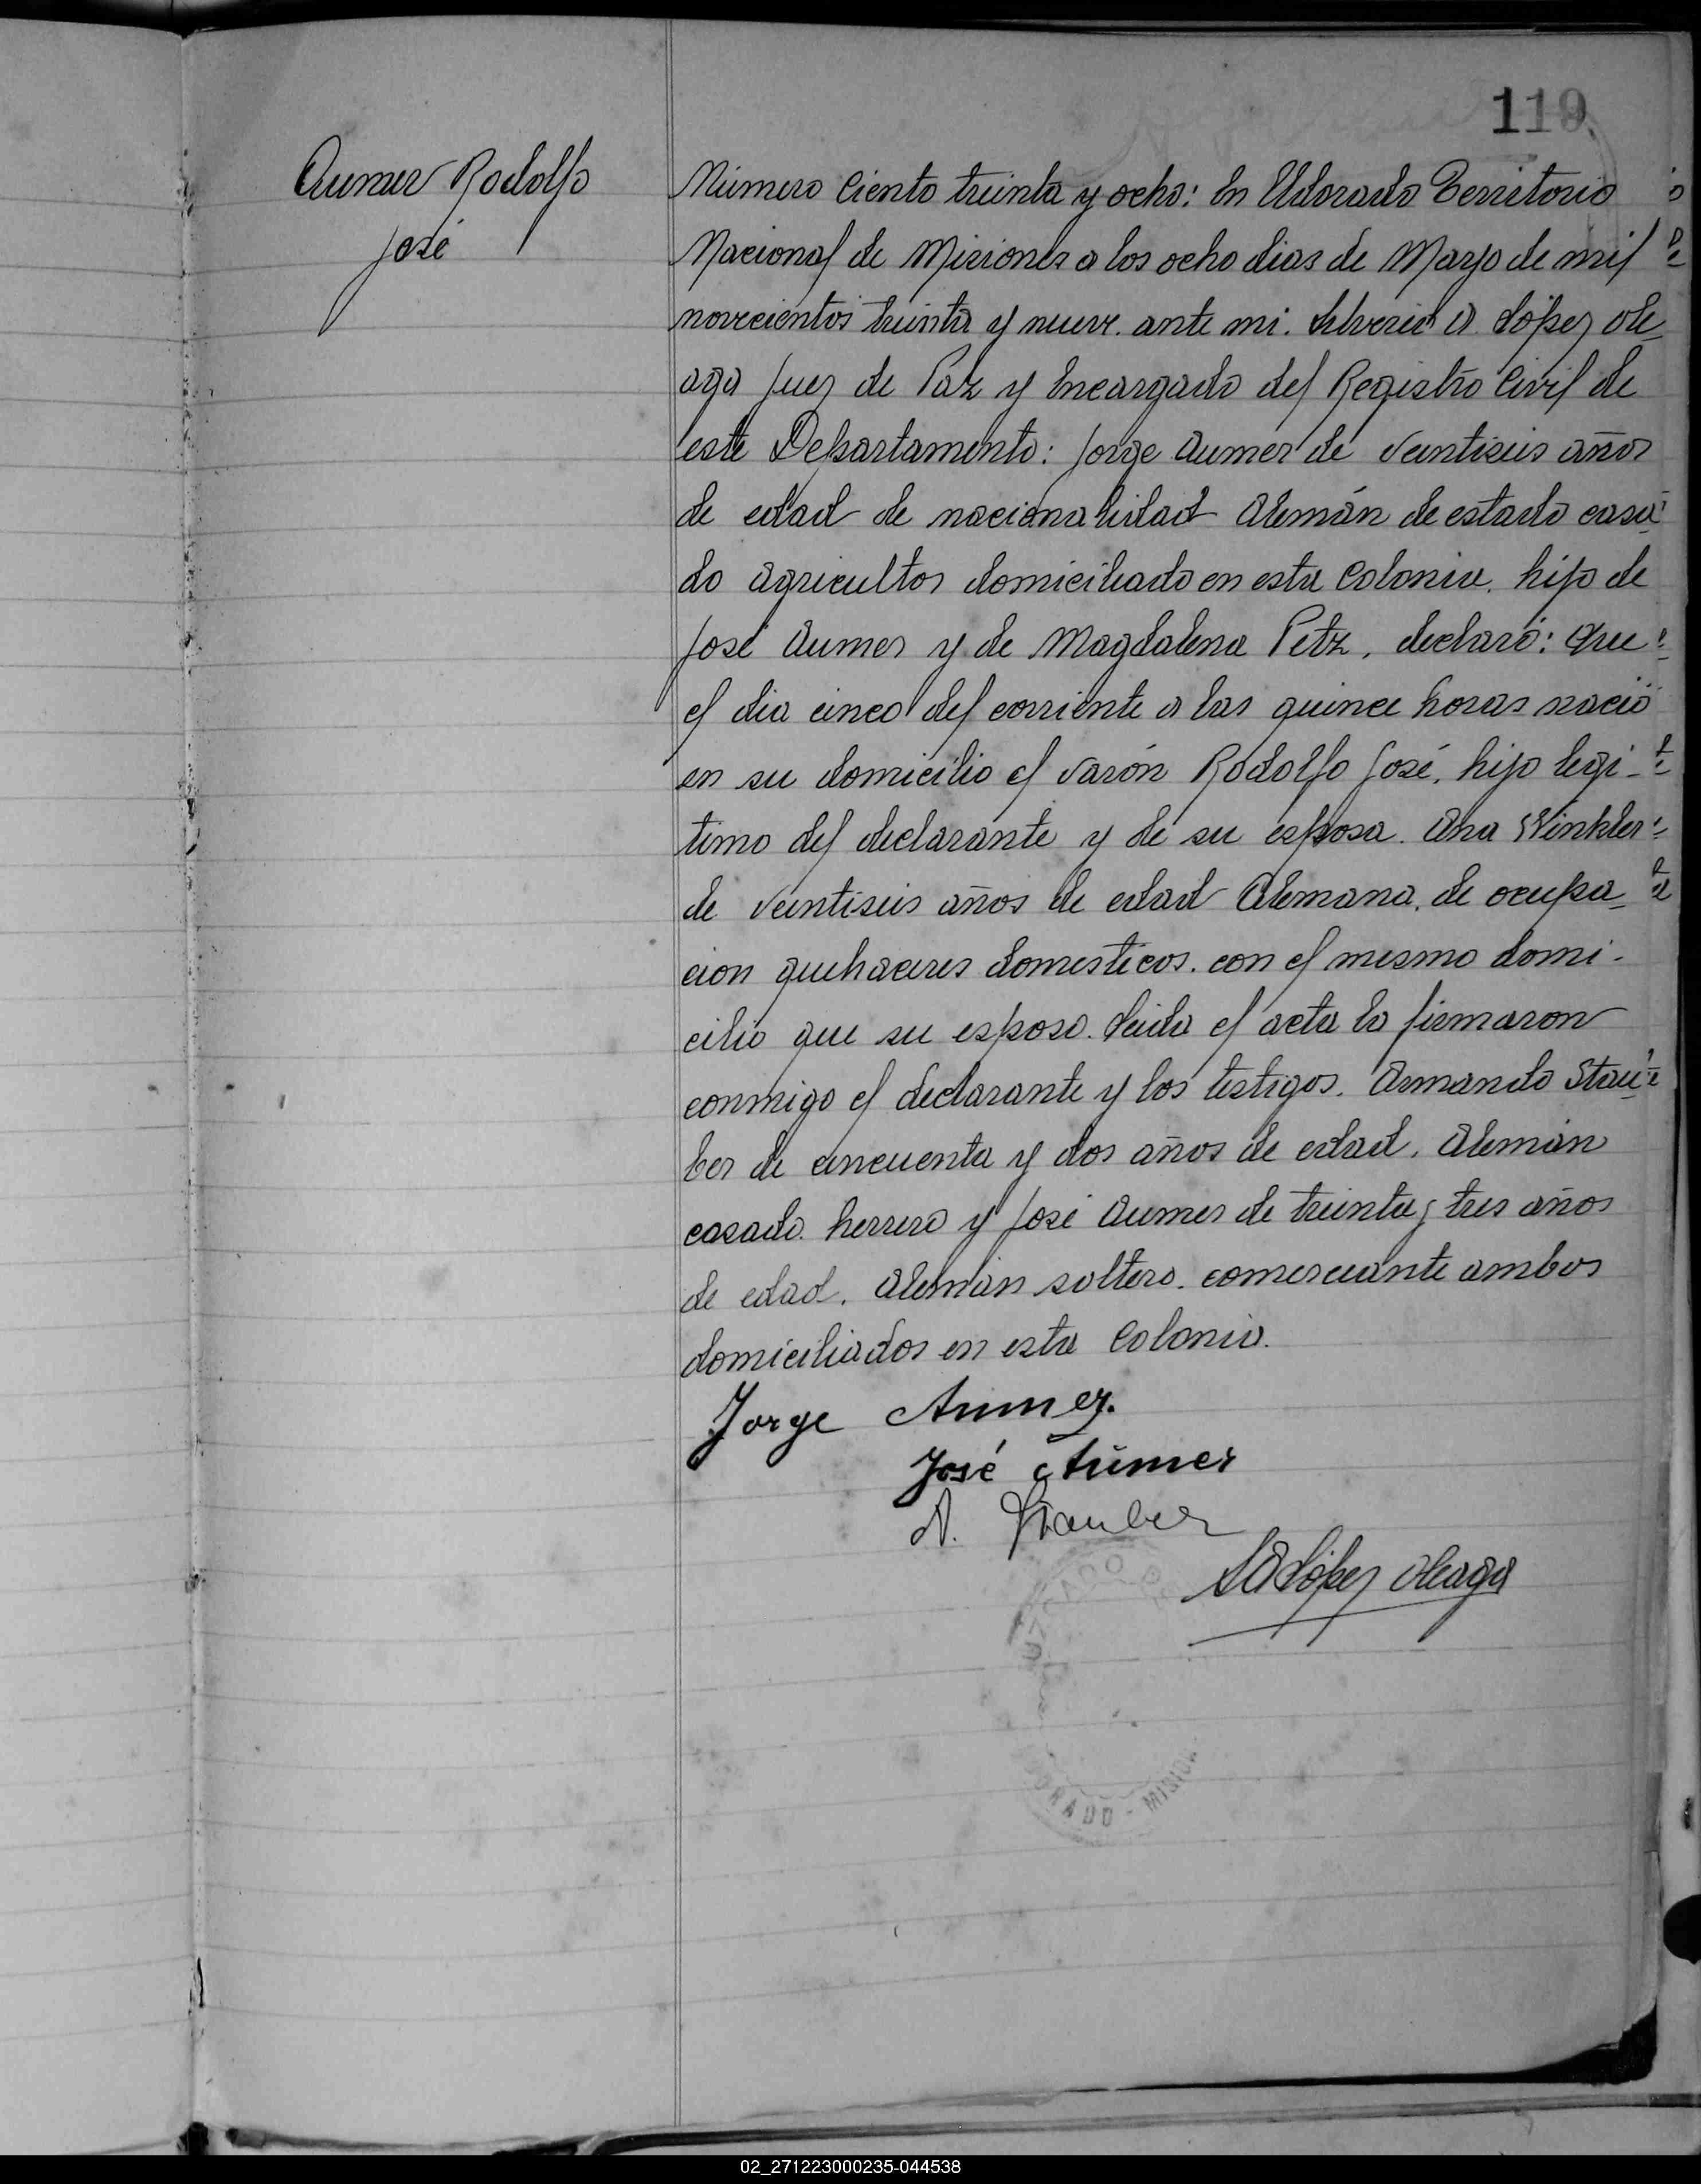 119
Aumer Rodolfo
José
Número Ciento treinta y ocho: En Eldorado Territorio
Nacional de Misiones a los ocho dias de Mayo de mil
novecientos treinta y nueve. ante mi. Silverio A López Ole
aga Juez de Paz y Encargado del Registro Civil de
este Departamento: Jorge Aumer de veintiseis años
de edad de nacionalidad Alemán de estado casa
do agricultor domiciliado en esta Colonia. hijo de
José Aumer y de Magdalena Petz, declaró: Que
el dia cinco del corriente a las quince horas nació
en su domicilio el varón Rodolfo José, hijo legi-
timo del declarante y de su esposa. Ana Winkler
de veintiseis años de edad Alemana. de ocupa
cion quehaceres domesticos. con el mismo domi-
cilio que su esposo. Leida el acta la firmaron
conmigo el declarante y los testigos. Armando Stau
ber de cincuenta y dos años de edad. Alemán
casado. herrero y José Aumer de treinta y tres años
de edad. Alemán soltero. comerciante ambos
domiciliados en esta Colonia.
Jorge Aumer.
José Aumer
A. Stauber
SALópez Oleaga
02_271223000235-044538